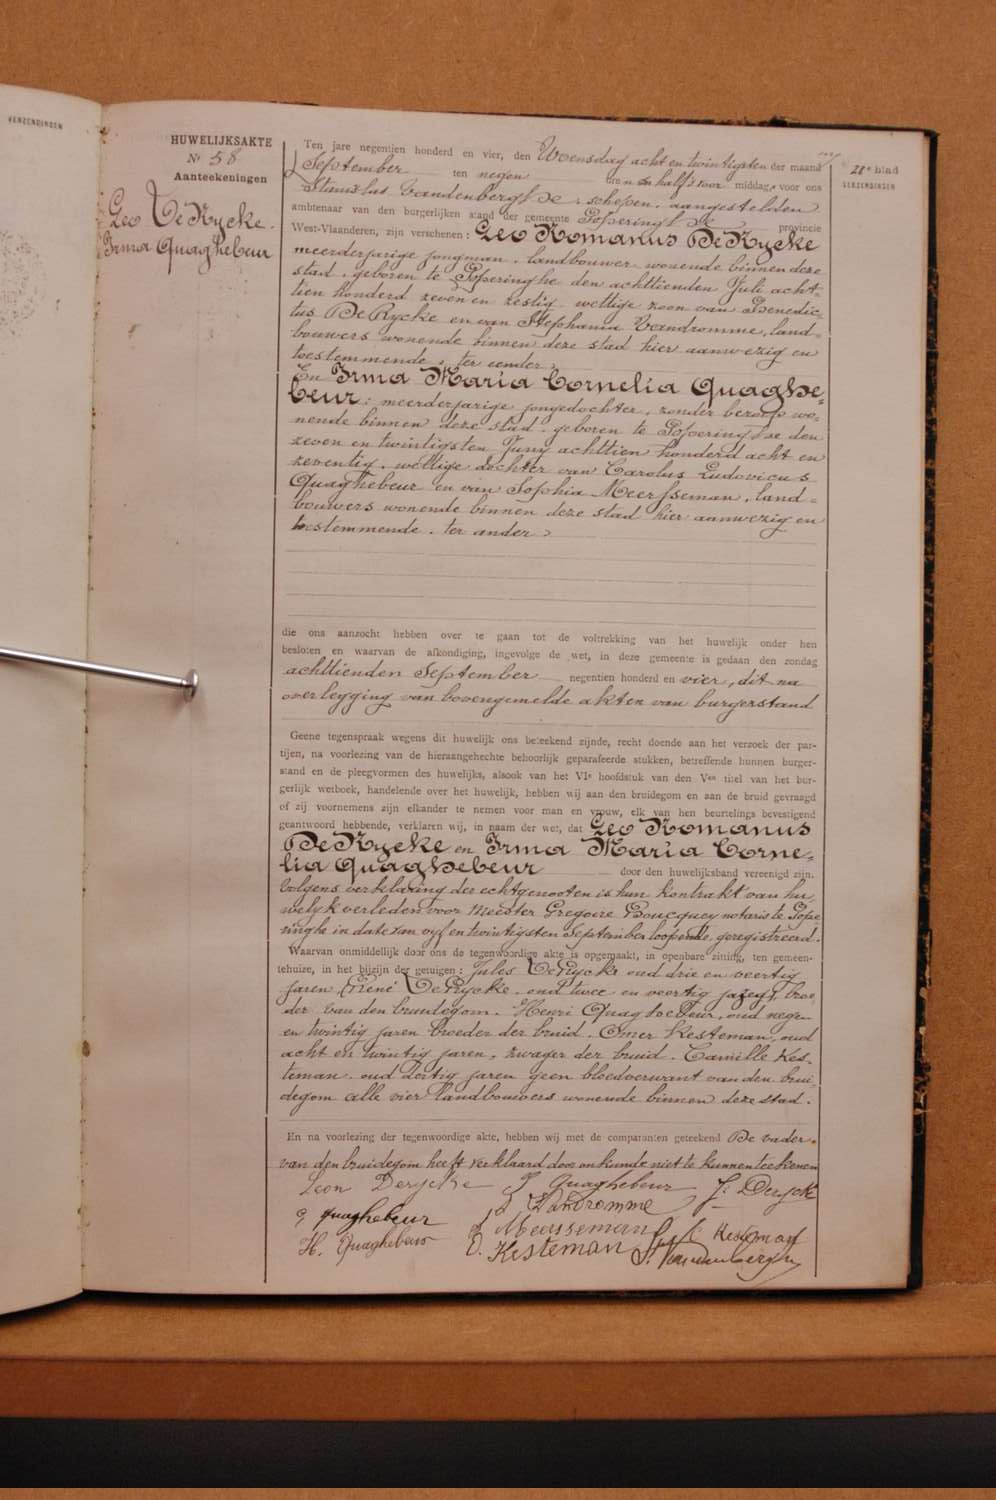 VERZENDINGEN
HUWELIJKSAKTE
N° 58
Aanteekeningen
Leo De Rycke.
Irma Quaghebeur
21e blad
VERZENDINGEN
Ten jare negentien honderd en vier, den Woensdag acht en twintigsten der maand
September ten negen ure n en half's voor middag, voor ons
Stanislas Vandenberghe, schepen, aangestelden
ambtenaar van den burgerlijken stand der gemeente Poperinghe provincie
West-Vlaanderen, zijn verschenen : Leo Romanus De Rycke
meerderjarige jongman, landbouwer wonende binnen deze
stad, geboren te Poperinghe den achttienden Juli acht-
tien honderd zeven en zestig, wettige zoon van Benedic
tus De Rycke en van Stephania Vandromme, land-
bouwers wonende binnen deze stad hier aanwezig en
toestemmende, ter eender,
En Irma Maria Cornelia Quaghe-
beur : meerderjarige jongedochter, zonder beroep wo-
nende binnen deze stad, geboren te Poperinghe den
zeven en twintigsten Juny achttien honderd acht en
zeventig, wettige dochter van Carolus Ludovicus
Quaghebeur en van Sophia Meersseman, land-
bouwers wonende binnen deze stad hier aanwezig en
toestemmende, ter ander,
die ons aanzocht hebben over te gaan tot de voltrekking van het huwelijk onder hen
besloten en waarvan de afkondiging, ingevolge de wet, in deze gemeente is gedaan den zondag
achttienden September negentien honderd en vier, dit na
overlegging van bovengemelde akten van burgerstand
Geene tegenspraak wegens dit huwelijk ons beteekend zijnde, recht doende aan het verzoek der par-
tijen, na voorlezing van de hieraangehechte behoorlijk geparafeerde stukken, betreffende hunnen burger-
stand en de pleegvormen des huwelijks, alsook van het VIe hoofdstuk van den Ven titel van het bur-
gerlijk wetboek, handelende over het huwelijk, hebben wij aan den bruidegom en aan de bruid gevraagd
of zij voornemens zijn elkander te nemen voor man en vrouw, elk van hen beurtelings bevestigend
geantwoord hebbende, verklaren wij, in naam der wet, dat Leo Romanus
De Rycke en Irma Maria Corne-
lia Quaghebeur door den huwelijksband vereenigd zijn.
Volgens verklaring der echtgenooten is hun kontrakt van hu
welyk verleden voor Meester Gregoire Boucquey notaris te Pope
ringhe in date van vyf en twintigsten September loopende, geregistreerd.
Waarvan onmiddellijk door ons de tegenwoordige akte is opgemaakt, in openbare zitting, ten gemeen-
tehuize, in het bijzijn der getuigen : Jules De Rycke oud drie en veertig
jaren, René De Rycke, oud twee en veertig jaren, broe
der van den bruidegom, Henri Quaghebeur, oud nege-
en twintig jaren broeder der bruid, Omer Kesteman, oud
acht en twintig jaren, zwager der bruid, Camille Kes-
teman, oud dertig jaren geen bloedverwant van den brui-
degom alle vier landbouwers wonende binnen deze stad.
En na voorlezing der tegenwoordige akte, hebben wij met de comparanten geteekend De vader
van den bruidegom heeft verklaard door onkunde niet te kunnen teekenen
Leon Derycke I Quaghebeur J. Deryck
C, quaghebeur S Vandromme
H. Quaghebeur S Meersseman C Kesteman
O. Kesteman St. Vandenberghe